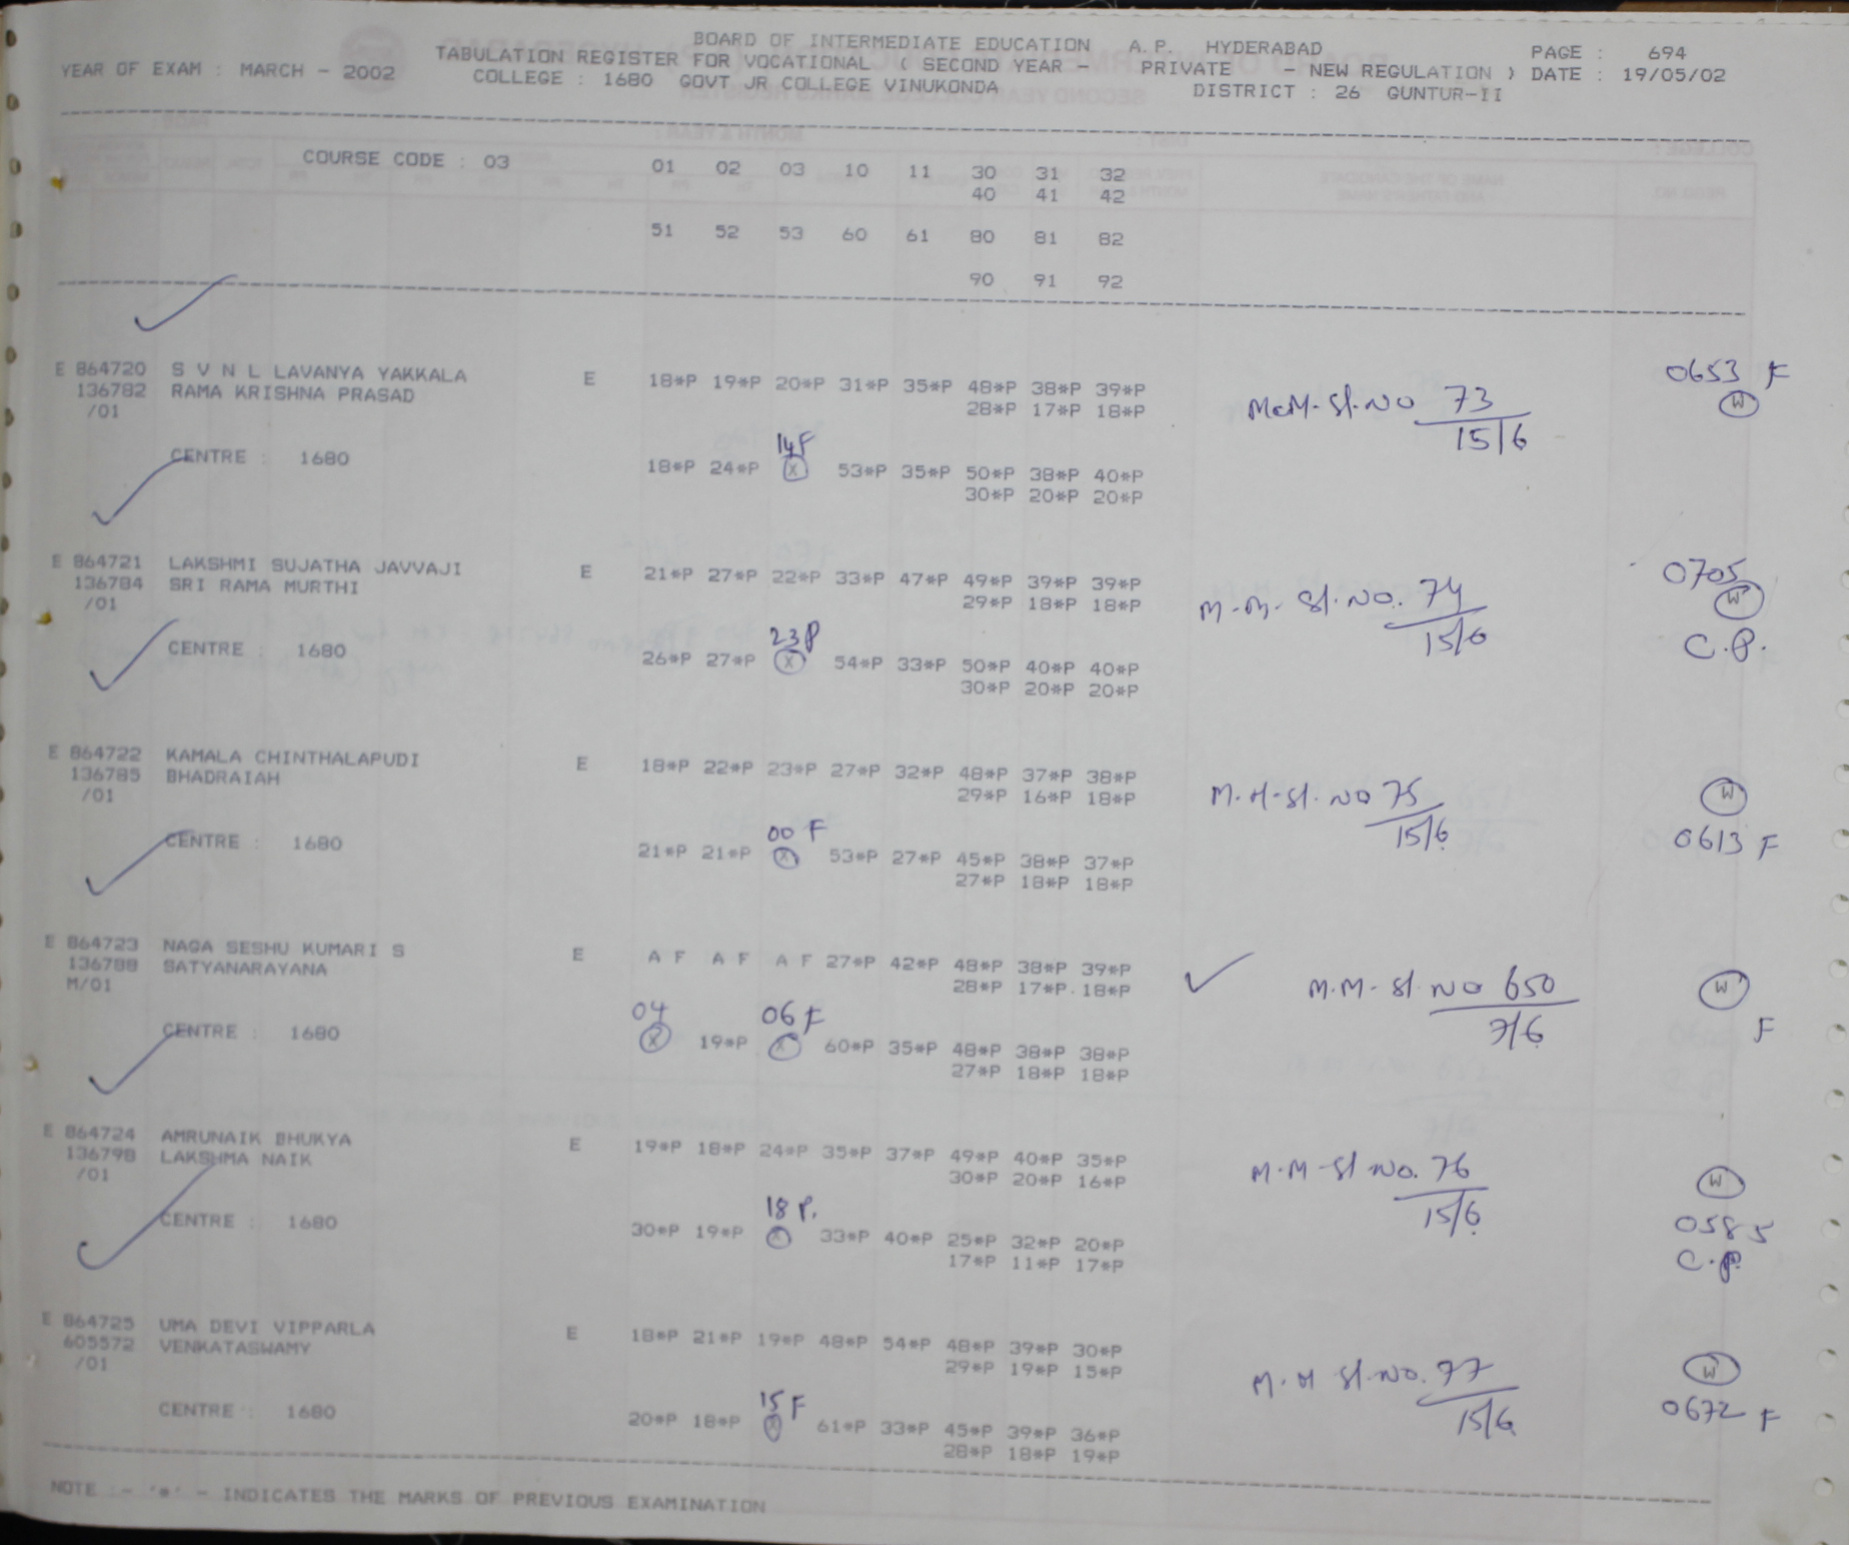 BOARD OF INTERMEDIATE EDUCATION A.P. HYDERABAD PAGE : 694
YEAR OF EXAM : MARCH - 2002 TABULATION REGISTER FOR VOCATIONAL ( SECOND YEAR - PRIVATE - NEW REGULATION ) DATE : 19/05/02
COLLEGE : 1680 GOVT JR COLLEGE VINUKONDA DISTRICT : 26 GUNTUR-II
COURSE CODE : 03 01 02 03 10 11 30 31 32
40 41 42
51 52 53 60 61 80 81 82
90 91 92
0653 F
E 864720 S V N L LAVANYA YAKKALA E 18*P 19*P 20*P 31*P 35*P 48*P 38*P 39*P
136782 RAMA KRISHNA PRASAD 28*P 17*P 18*P M.M. Sl. No 73 W
/01 15/6
14F
CENTRE : 1680 18*P 24*P X 53*P 35*P 50*P 38*P 40*P
30*P 20*P 20*P
E 864721 LAKSHMI SUJATHA JAVVAJI E 21*P 27*P 22*P 33*P 47*P 49*P 39*P 39*P 0705
136784 SRI RAMA MURTHI 29*P 18*P 18*P M.M. Sl. No. 74 W
/01 15/6
23P C.P.
CENTRE : 1680 26*P 27*P X 54*P 33*P 50*P 40*P 40*P
30*P 20*P 20*P
E 864722 KAMALA CHINTHALAPUDI E 18*P 22*P 23*P 27*P 32*P 48*P 37*P 38*P
136785 BHADRAIAH 29*P 16*P 18*P M.M. Sl. No 75 W
/01 15/6
00 F 0613 F
CENTRE : 1680 21*P 21*P X 53*P 27*P 45*P 38*P 37*P
27*P 18*P 18*P
E 864723 NAGA SESHU KUMARI S E A F A F A F 27*P 42*P 48*P 38*P 39*P
136788 SATYANARAYANA 28*P 17*P 18*P ✓ M.M. Sl No 650 W
M/01 7/6
04 06 F F
CENTRE : 1680 X 19*P X 60*P 35*P 48*P 38*P 38*P
27*P 18*P 18*P
E 864724 AMRUNAIK BHUKYA E 19*P 18*P 24*P 35*P 37*P 49*P 40*P 35*P
136798 LAKSHMA NAIK 30*P 20*P 16*P M.M. Sl No. 76 W
/01 15/6
18 P. 0585
CENTRE : 1680 30*P 19*P X 33*P 40*P 25*P 32*P 20*P
17*P 11*P 17*P C.P.
E 864725 UMA DEVI VIPPARLA E 18*P 21*P 19*P 48*P 54*P 48*P 39*P 30*P
605572 VENKATASWAMY 29*P 19*P 15*P M.M Sl. No. 77 W
/01 15/6
15 F 0672 F
CENTRE : 1680 20*P 18*P X 61*P 33*P 45*P 39*P 36*P
28*P 18*P 19*P
NOTE :- '*' - INDICATES THE MARKS OF PREVIOUS EXAMINATION